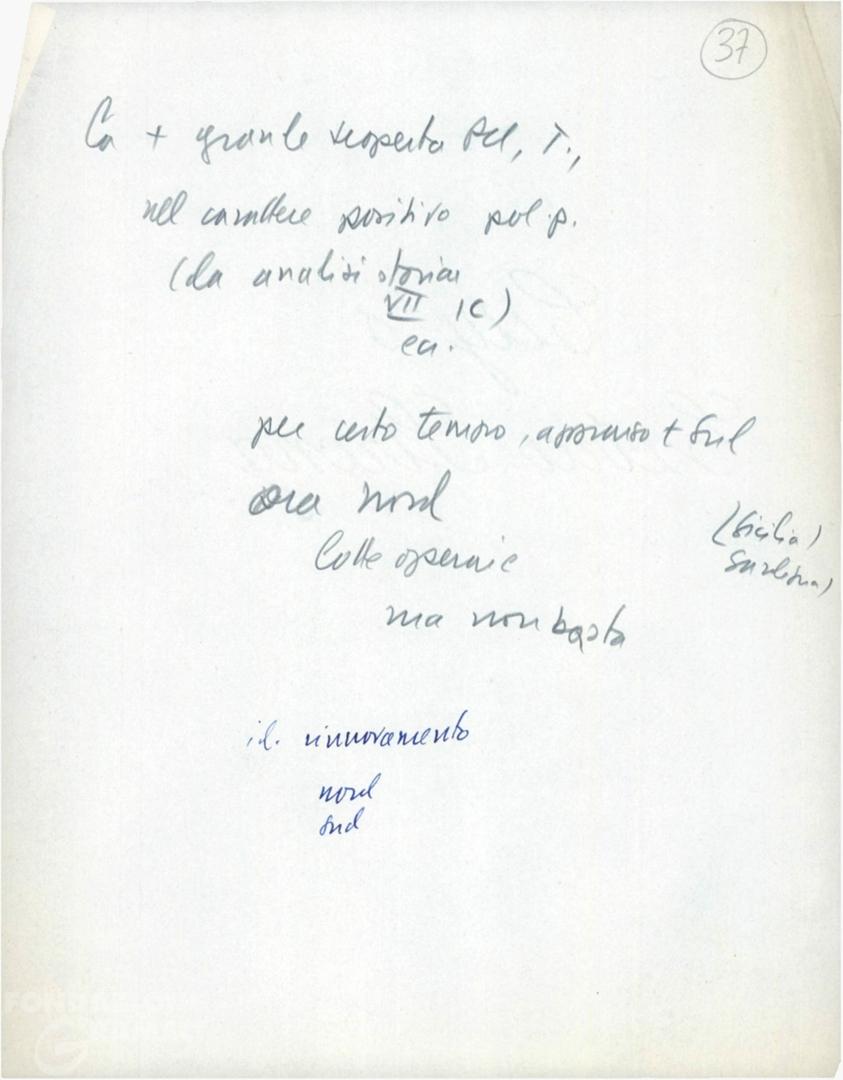 37
La + grande scoperta PCI, T.,
nel carattere positivo pol. p.
(da analisi storia
VII IC)
ec.
per certo tempo, appreso + Sul
ora nord
(Sicilia)
Lotte operaie
Sardegna)
ma non basta
il. rinnovamento
nord
sud
FONDAZIONE
GRAMSCI